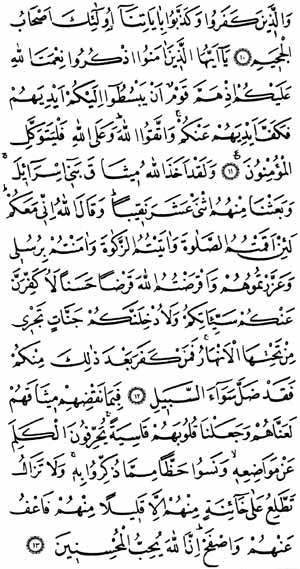 وَالَّذِينَ كَفَرُوا وَكَذَّبُوا بِآيَاتِنَا أُولَٰئِكَ أَصْحَابُ
الْجَحِيمِ ﴿١٠﴾ يَا أَيُّهَا الَّذِينَ آمَنُوا اذْكُرُوا نِعْمَتَ اللَّهِ
عَلَيْكُمْ إِذْ هَمَّ قَوْمٌ أَنْ يَبْسُطُوا إِلَيْكُمْ أَيْدِيَهُمْ
فَكَفَّ أَيْدِيَهُمْ عَنْكُمْ وَاتَّقُوا اللَّهَ وَعَلَى اللَّهِ فَلْيَتَوَكَّلِ
الْمُؤْمِنُونَ ﴿١١﴾ وَلَقَدْ أَخَذَ اللَّهُ مِيثَاقَ بَنِي إِسْرَائِيلَ
وَبَعَثْنَا مِنْهُمُ اثْنَيْ عَشَرَ نَقِيبًا وَقَالَ اللَّهُ إِنِّي مَعَكُمْ
لَئِنْ أَقَمْتُمُ الصَّلَوٰةَ وَآتَيْتُمُ الزَّكَوٰةَ وَآمَنْتُمْ بِرُسُلِي
وَعَزَّرْتُمُوهُمْ وَأَقْرَضْتُمُ اللَّهَ قَرْضًا حَسَنًا لَأُكَفِّرَنَّ
عَنْكُمْ سَيِّئَاتِكُمْ وَلَأُدْخِلَنَّكُمْ جَنَّاتٍ تَجْرِي
مِنْ تَحْتِهَا الْأَنْهَارُ فَمَنْ كَفَرَ بَعْدَ ذَٰلِكَ مِنْكُمْ
فَقَدْ ضَلَّ سَوَاءَ السَّبِيلِ ﴿١٢﴾ فَبِمَا نَقْضِهِمْ مِيثَاقَهُمْ
لَعَنَّاهُمْ وَجَعَلْنَا قُلُوبَهُمْ قَاسِيَةً يُحَرِّفُونَ الْكَلِمَ
عَنْ مَوَاضِعِهِ وَنَسُوا حَظًّا مِمَّا ذُكِّرُوا بِهِ وَلَا تَزَالُ
تَطَّلِعُ عَلَىٰ خَائِنَةٍ مِنْهُمْ إِلَّا قَلِيلًا مِنْهُمْ فَاعْفُ
عَنْهُمْ وَاصْفَحْ إِنَّ اللَّهَ يُحِبُّ الْمُحْسِنِينَ ﴿١٣﴾